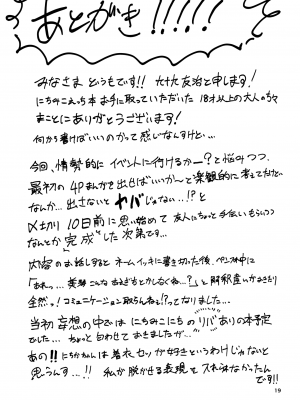 あとがき!!!!!
みなさま どうもです!! 九十九 友治と申します!
にちみこえっち本 お手に取っていただいた 18才以上の大人のちゃ
まことにありがとうございます!
何から書けばいいのかって感じなんすけど…
今回、情勢的に イベントに行けるかー?と悩みつつ、
最初の 4Pまんがを 出せばいいか〜と楽観的に考えてたけど
なんか…出さないと ヤバじゃない…!?と
〆切り 10日前に思い始めて 友人にちょっと手伝いもらいつつ
なんとか 完成した 次第です…
内容のお話しすると ネーム イッキに書き切った後、ペン入れ中に
「あれっ…美琴こんな
」と 解釈違いが
全然っ!コミュニケーション取らんねぇ!?ってなりました…
当初 妄想の中では にちみこにちの リバありの本予定
でした… ちょっと 匂わせておきましたが…
あの!! にちかちゃんは 着衣セッが好きというわけじゃないと
思うんす…!! 私が脱がせる表現を 入れられなかったん
です!!
19